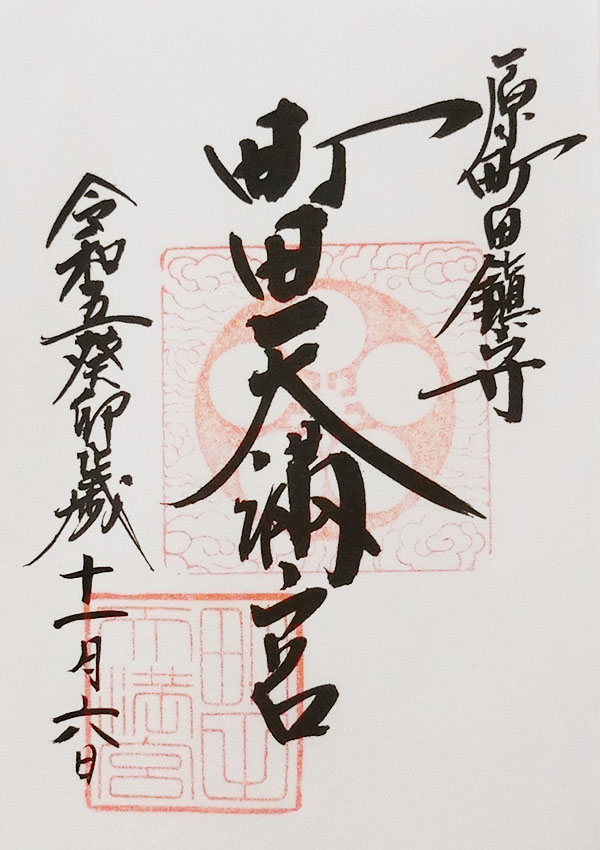 原町田鎮守
町田天満宮
令和五癸卯歳十一月六日
町田
天満宮